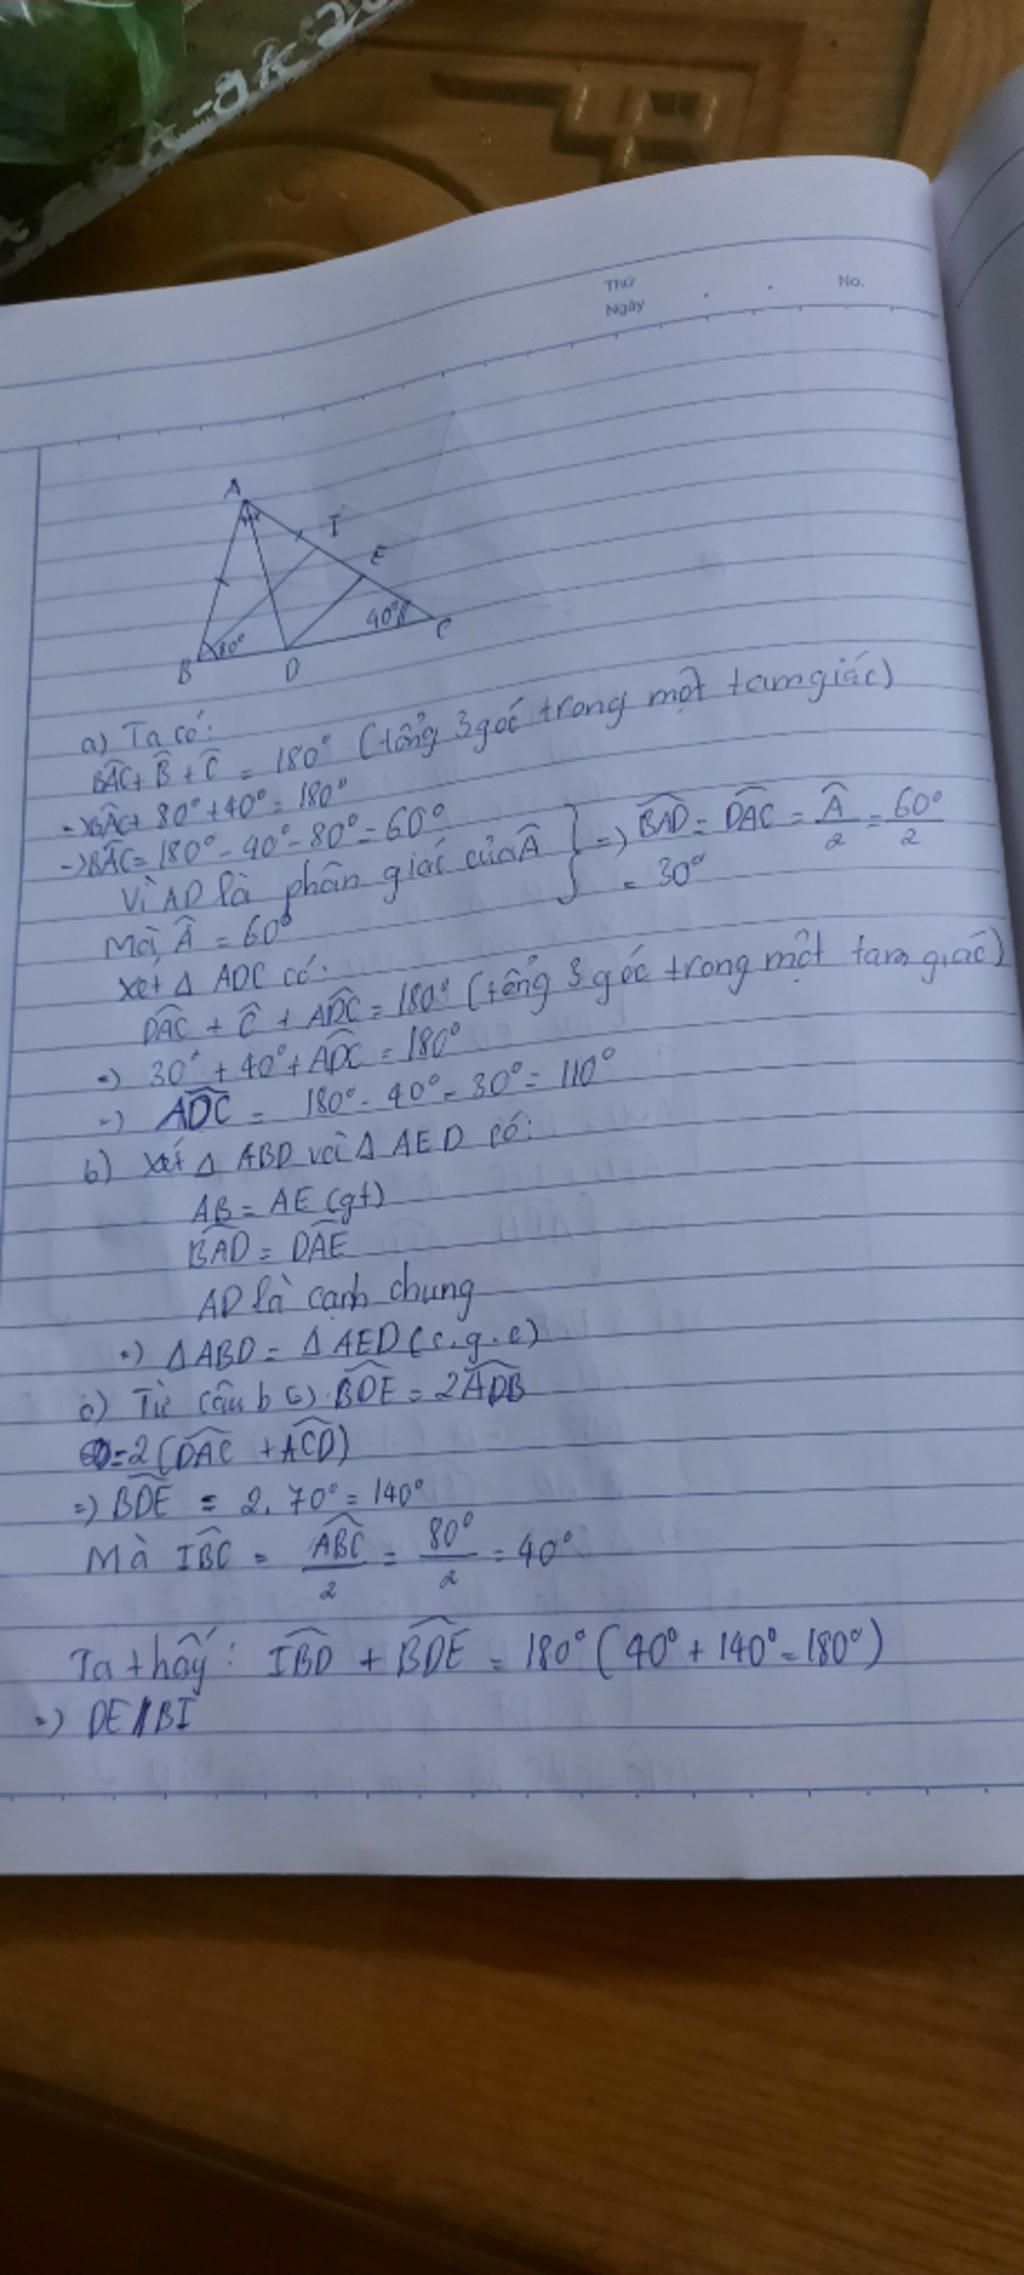 Thứ
Ngày
No.
A
I
E
40°
C
80°
B
D
a) Ta có:
BAC + B + C = 180° (tổng 3 góc trong một tam giác)
=> BAC + 80° + 40° = 180°
=> BAC = 180° - 40° - 80° = 60°
Vì AD là phân giác của Â } => BAD = DAC = Â/2 = 60°/2
Mà Â = 60° = 30°
Xét Δ ADC có:
DAC + C + ADC = 180° (tổng 3 góc trong một tam giác)
=> 30° + 40° + ADC = 180°
=> ADC = 180° - 40° - 30° = 110°
b) Xét Δ ABD và Δ AED có:
AB = AE (gt)
BAD = DAE
AD là cạnh chung
=> Δ ABD = Δ AED (c.g.c)
c) Từ câu b BDE = 2ADB
= 2 (DAC + ACD)
=> BDE = 2. 70° = 140°
Mà IBC = ABC/2 = 80°/2 = 40°
Ta thấy: IBD + BDE = 180° (40° + 140° = 180°)
=> DE // BI